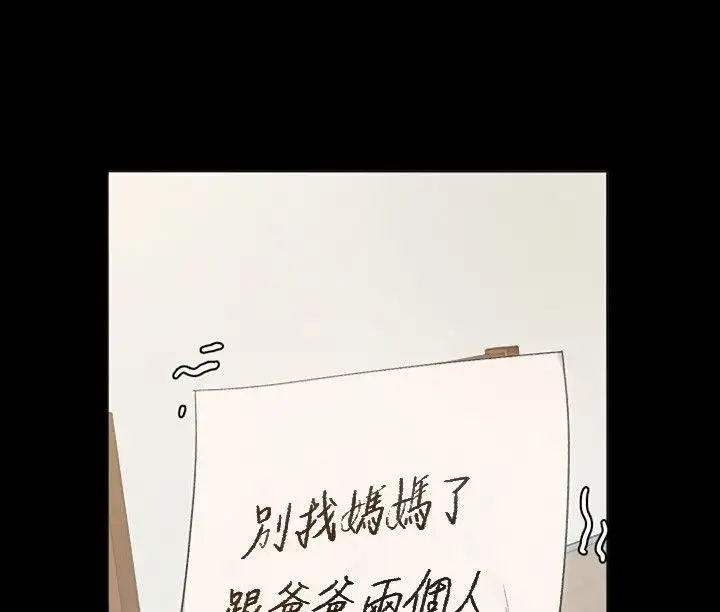 別找媽媽了
跟爸爸兩個人